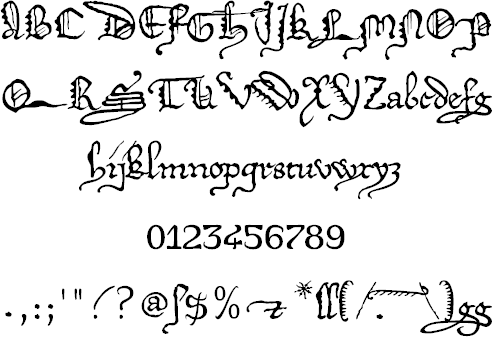 ABCDEFGHIJKLMNOP
QRSTUVWXYZabcdefg
hijklmnopqrstuvwxyz
0123456789
.,:;'"/?@$%*(/.)gg